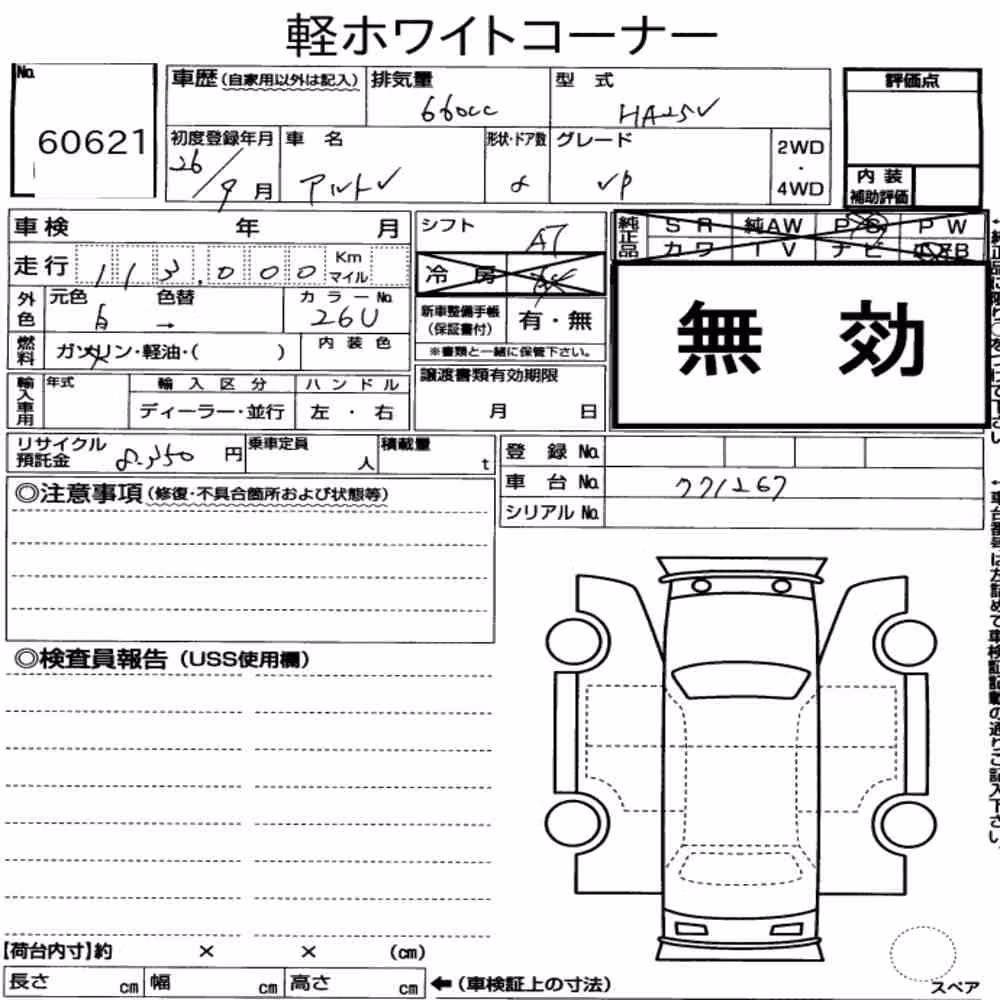 軽ホワイトコーナー
No.
60621
車歴 (自家用以外は記入)
排気量
660cc
型 式
HA25V
評価点
初度登録年月
26/9月
車 名
アルトV
形状・ドア数
グレード
VP
2WD
・
4WD
内 装
補助評価
車検 年 月
走行 113,000 Km
マイル
シフト
AT
冷 房
純正品
S R 純AW P S P W
カワ T V ナビ
外色
元色
白
色替
→
カラーNo.
26U
新車整備手帳
(保証書付)
有・無
※書類と一緒に保管下さい。
無 効
燃料
ガソリン・軽油・( )
内 装 色
輸入車用
年式
輸 入 区 分
ディーラー・並行
ハ ン ド ル
左 ・ 右
譲渡書類有効期限
月 日
リサイクル
預託金
8.350 円
乗車定員
人
積載量
t
登 録 No.
車 台 No. 771267
シリアル No.
◎注意事項 (修復・不具合箇所および状態等)
◎検査員報告 (USS使用欄)
【荷台内寸】約 × × (cm)
長さ cm 幅 cm 高さ cm ←(車検証上の寸法)
スペア
←車台番号は左詰めで車検証記載の通りご記入下さい。